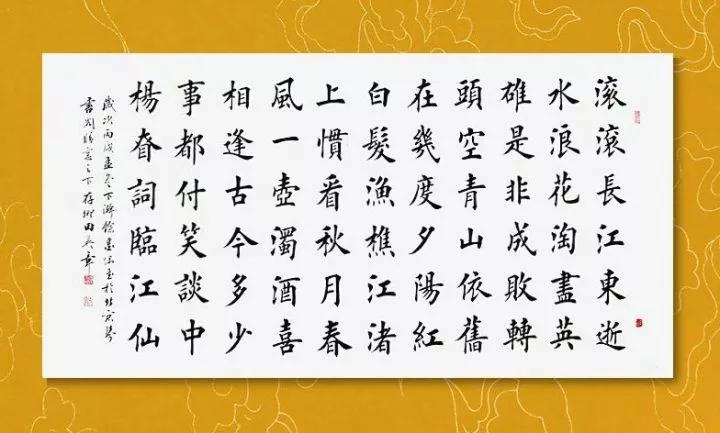 滚滚長江東逝
水浪花淘盡英
雄是非成敗轉
頭空青山依舊
在幾度夕陽紅
白髮漁樵江渚
上慣看秋月春
風一壺濁酒喜
相逢古今多少
事都付笑談中
楊昚詞臨江仙
歲次丙戌孟冬下澣於北京琴
書閣之下田英章